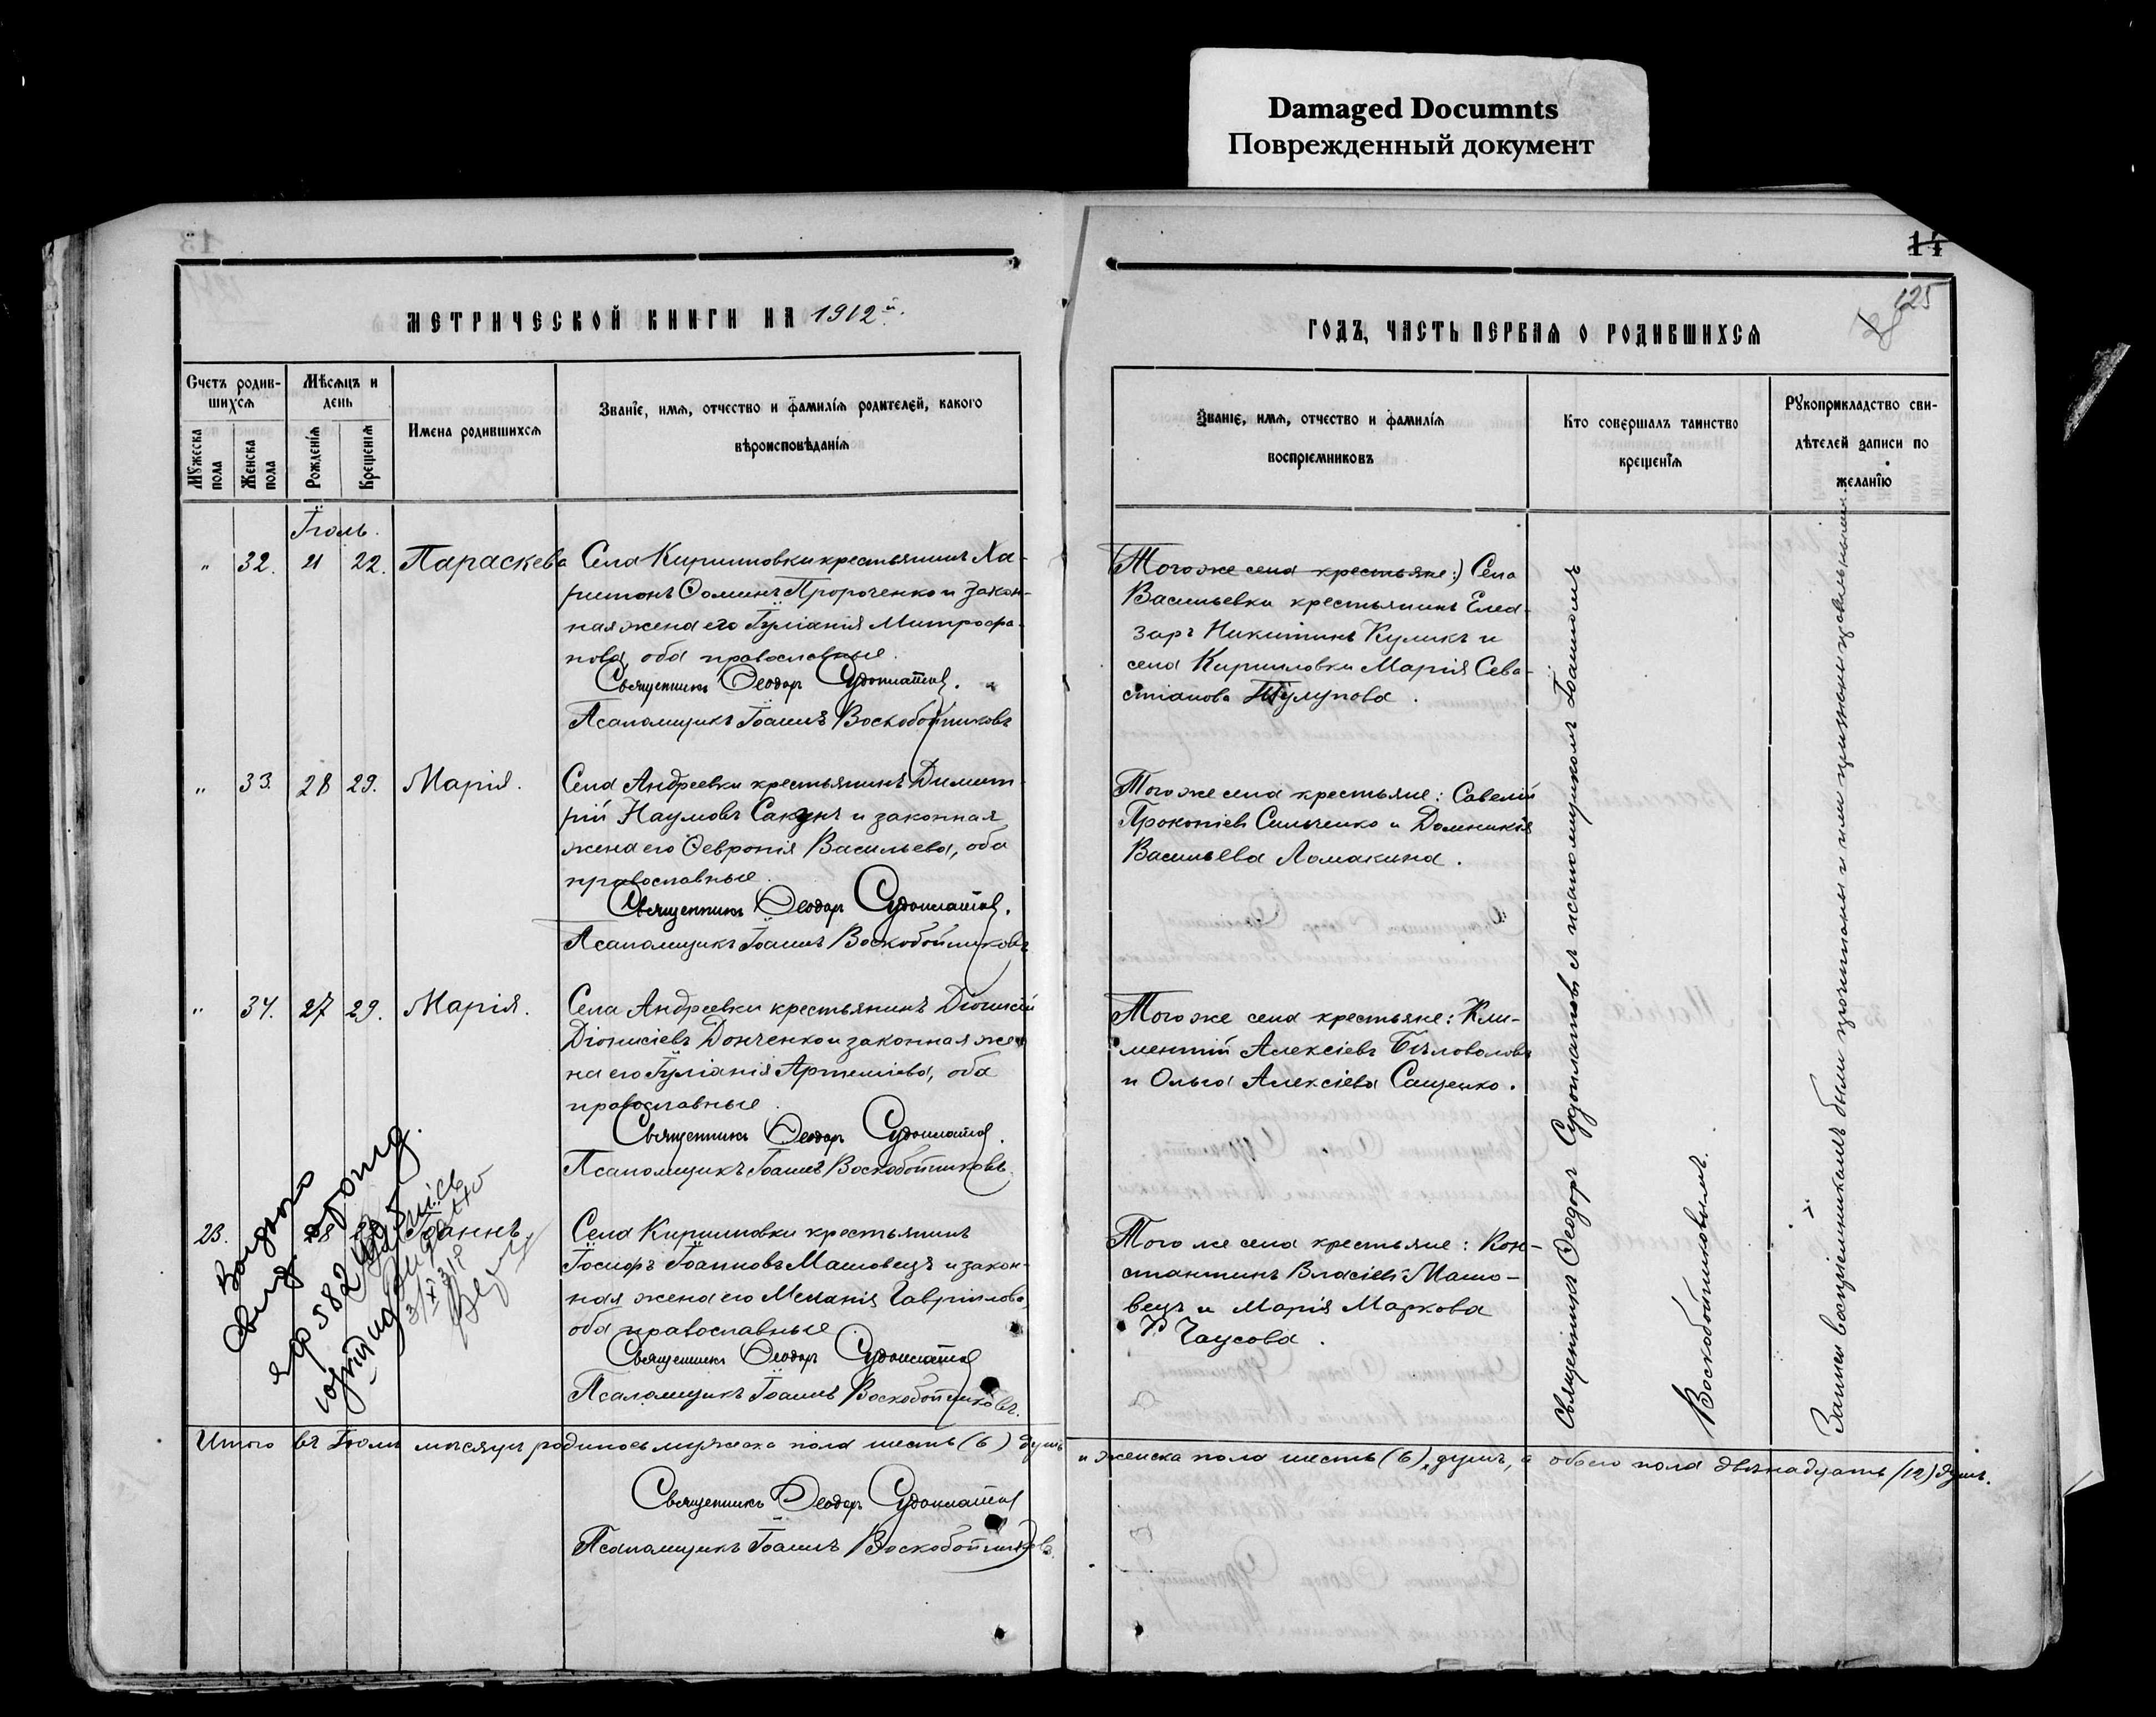 Damaged Documnts
Поврежденный документ
13
МЕТРИЧЕСКОЙ КНИГИ НА 1912й.
Счетъ родив-
шихся
Мѣсяцъ и
день
Мужеска
пола
Женска
пола
Рожденія
Крещенія
Имена родившихся
Званіе, имя, отчество и фамилія родителей, какого
вѣроисповѣданія
Іюль.
" 32. 21 22. Параскева
Села Кирилловки крестьянинъ Ха-
ритонъ Ѳоминъ Пророченко и закон-
ная жена его Іуліанія Митрофа-
нова, оба православные.
Священникъ Ѳеодоръ Судоплатов.
Псаломщикъ Іоаннъ Воскобойниковъ
" 33. 28 29. Марія.
Села Андреевки крестьянинъ Димит-
рій Наумовъ Сакунъ и законная
жена его Ѳевронія Васильева, оба
православные.
Священникъ Ѳеодоръ Судоплатов.
Псаломщикъ Іоаннъ Воскобойниковъ
" 34. 27 29. Марія.
Села Андреевки крестьянинъ Діонисій
Діонисіевъ Донченко и законная же-
на его Іуліанія Артеміева, оба
православные.
Священникъ Ѳеодоръ Судоплатов.
Псаломщикъ Іоаннъ Воскобойниковъ.
23. 28 Іоаннъ.
Села Кирилловки крестьянинъ
Іосифъ Іоанновъ Машовецъ и закон-
ная жена его Меланія Гавріилова,
оба православные.
Священникъ Ѳеодоръ Судоплатов
Псаломщикъ Іоаннъ Воскобойниковъ.
Итого въ Іюлѣ мѣсяцѣ родилось мужеска пола шесть (6) душъ
Священникъ Ѳеодоръ Судоплатов
Псаломщикъ Іоаннъ Воскобойниковъ.
14
125
ГОДЪ, ЧАСТЬ ПЕРВАЯ О РОДИВШИХСЯ
Званіе, имя, отчество и фамилія
воспріемниковъ
Кто совершалъ таинство
крещенія
Рукоприкладство сви-
дѣтелей записи по
желанію
(Того же села крестьяне:) Села
Васильевки крестьянинъ Елеа-
заръ Никитинъ Куликъ и
села Кирилловки Марія Сева-
стіанова Тулупова.
Того же села крестьяне: Савелій
Прокопіевъ Сильченко и Домникія
Васильева Ломакина.
Того же села крестьяне: Кли-
ментій Алексіевъ Бѣловоловъ
и Ольга Алексіева Сащенко.
Того же села крестьяне: Кон-
стантинъ Власіевъ Машо-
вецъ и Марія Маркова
Чаусова.
Священникъ Ѳеодоръ Судоплатовъ съ псаломщикомъ Іоанномъ
Воскобойниковымъ.
Записи воспріемникамъ были прочитаны и ими признаны правильными.
и женска пола шесть (6) душъ, а обоего пола двѣнадцать (12) душъ.